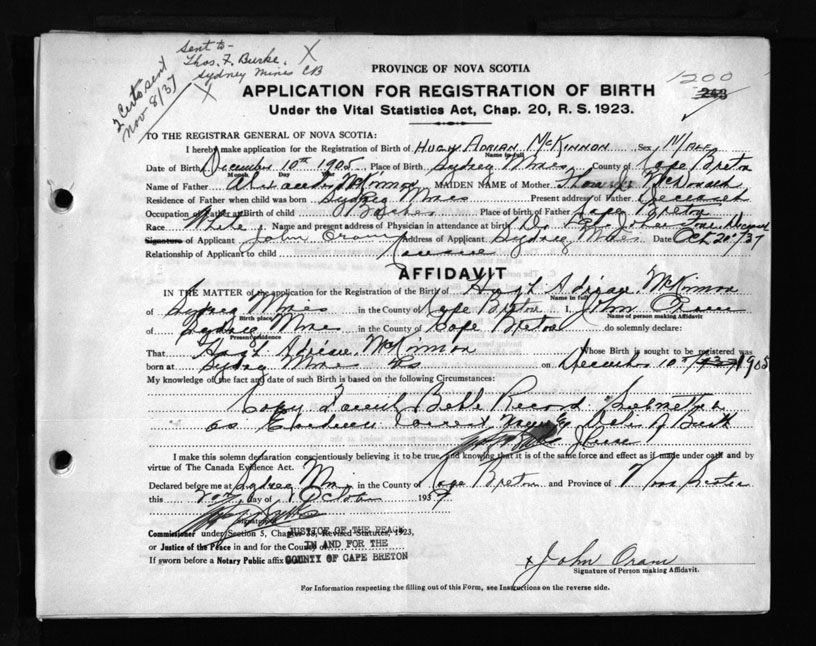 Sent to-
Thos. F. Burke. X
Sydney Mines CB
X
2 Certs sent
Nov 8/37
1200
PROVINCE OF NOVA SCOTIA
APPLICATION FOR REGISTRATION OF BIRTH
Under the Vital Statistics Act, Chap. 20, R. S. 1923.
TO THE REGISTRAR GENERAL OF NOVA SCOTIA:
I hereby make application for the Registration of Birth of Hugh Adrian McKinnon Sex Male
Name in full
Date of Birth December 10th 1905 Place of Birth Sydney Mines County of Cape Breton
Month Day
Name of Father McKinnon MAIDEN NAME of Mother
Residence of Father when child was born Sydney Mines Present address of Father Deceased
Occupation of Father at Birth of child Place of Birth of Father Cape Breton
Race White Name and present address of Physician in attendance at birth Dr. Deceased
Signature of Applicant John Oram Address of Applicant Sydney Mines Date Oct 20/37
Relationship of Applicant to child
AFFIDAVIT
IN THE MATTER of the application for the Registration of the Birth of Hugh Adrian McKinnon
Name in full
of Sydney Mines in the County of Cape Breton I, John Oram
Birth place Name of person making Affidavit
of Sydney Mines in the County of Cape Breton do solemnly declare:
Present residence
That Hugh Adrian McKinnon Whose Birth is sought to be registered was
born at Sydney Mines NS on December 10th 1905
My knowledge of the fact and date of such Birth is based on the following Circumstances:
Copy Bible Record
as of Birth
I make this solemn declaration conscientiously believing it to be true, and knowing that it is of the same force and effect as if made under oath and by
virtue of The Canada Evidence Act.
Declared before me at Sydney Mines in the County of Cape Breton and Province of Nova Scotia
this day of October 1937
Signature
Commissioner under Section 5, Chapter 38, Revised Statutes, 1923,
JUSTICE OF THE PEACE
or Justice of the Peace in and for the County of
IN AND FOR THE
If sworn before a Notary Public affix
COUNTY OF CAPE BRETON
x John Oram
Signature of Person making Affidavit.
For Information respecting the filling out of this Form, see Instructions on the reverse side.